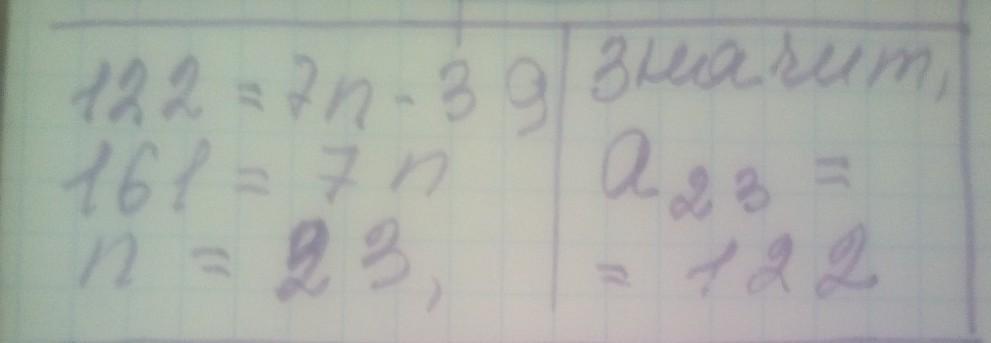 122 = 7n - 39
161 = 7n
n = 23,
Значит,
a₂₃ =
= 122